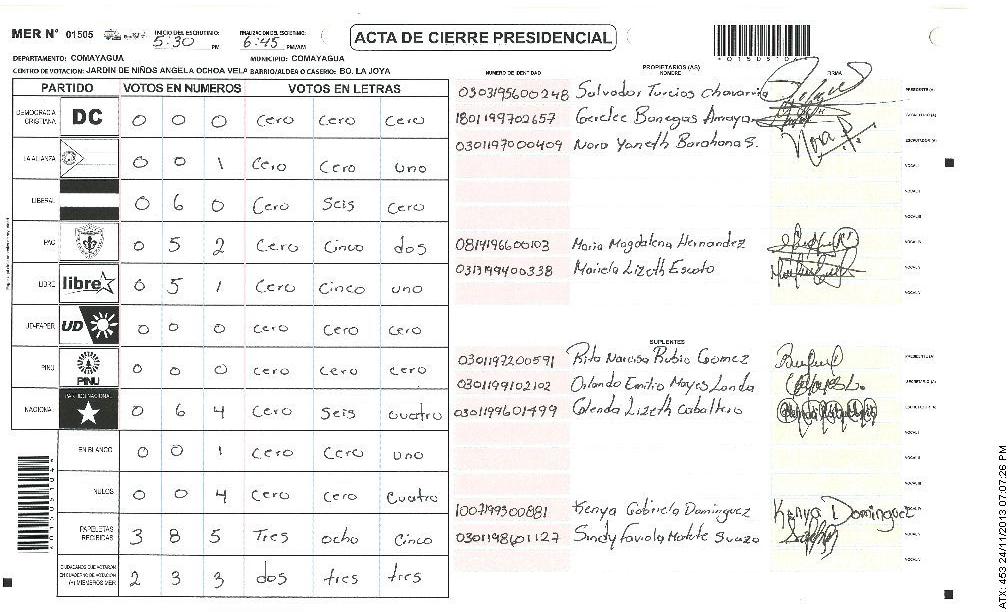 MER N° 01505 INICIO DEL ESCRUTINIO: 5:30 PM FINALIZACION DEL ESCRUTINIO: 6:45 PM/AM
ACTA DE CIERRE PRESIDENCIAL
*0150510*
DEPARTAMENTO: COMAYAGUA MUNICIPIO: COMAYAGUA
CENTRO DE VOTACION: JARDIN DE NIÑOS ANGELA OCHOA VELA BARRIO/ALDEA O CASERIO: BO. LA JOYA
PARTIDO VOTOS EN NUMEROS VOTOS EN LETRAS
DEMOCRACIA CRISTIANA DC 0 0 0 Cero Cero Cero
LA ALIANZA 0 0 1 Cero Cero uno
LIBERAL 0 6 0 Cero Seis Cero
PAC 0 5 2 Cero Cinco dos
LIBRE libre 0 5 1 Cero Cinco uno
UD-FAPER UD 0 0 0 Cero Cero Cero
PINU PINU 0 0 0 Cero Cero Cero
NACIONAL PARTIDO NACIONAL 0 6 4 Cero Seis cuatro
EN BLANCO 0 0 1 Cero Cero uno
NULOS 0 0 4 Cero Cero Cuatro
PAPELETAS RECIBIDAS 3 8 5 Tres ocho Cinco
CIUDADANOS QUE VOTARON EN CUADERNO DE VOTACION (+) MIEMBROS MER 2 3 3 dos tres tres
PROPIETARIOS (AS)
NUMERO DE IDENTIDAD NOMBRE FIRMA
0303195600248 Salvador Turcios Chavarria PRESIDENTE (A)
1801199702657 Gerelec Banegas Amaya SECRETARIO (A)
0301197000409 Nora Yaneth Barahona S. Nora ESCRUTADOR (A)
VOCAL I
VOCAL II
VOCAL III
0814196600103 Maria Magdalena Hernandez
0313199400338 Mariela Lizeth Escoto
SUPLENTES
0301197200591 Rita Narcisa Rubio Gomez PRESIDENTE (A)
0301199102102 Orlando Emilio Mayes Landa SECRETARIO (A)
0301199601499 Glenda Lizeth Caballero
VOCAL I
VOCAL II
VOCAL III
1007199300881 Kenya Gabriela Dominguez Kenya Dominguez
0301198601127 Sindy Faviola Matute Suazo
ATX: 453 24/11/2013 07:07:26 PM